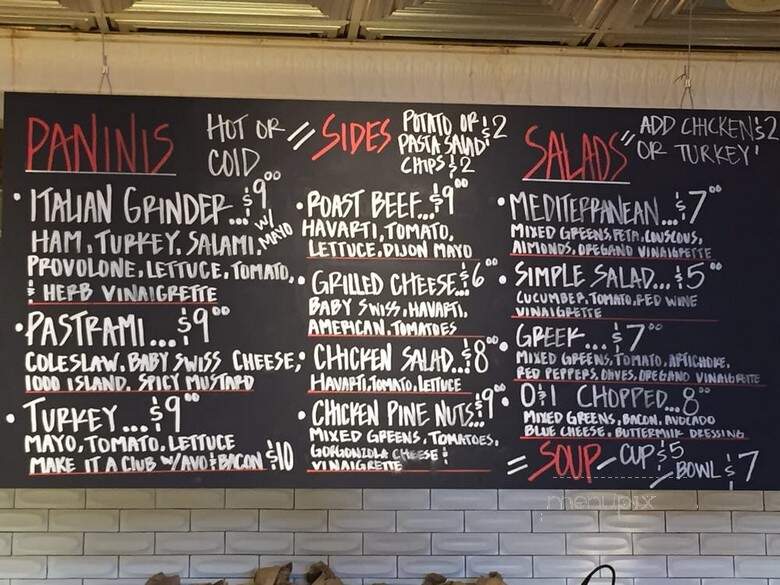 PANINIS HOT OR COLD
• ITALIAN GRINDER...$9.00
HAM, TURKEY, SALAMI, W/ MAYO
PROVOLONE, LETTUCE, TOMATO,
& HERB VINAIGRETTE
• PASTRAMI...$9.00
COLESLAW, BABY SWISS CHEESE,
1000 ISLAND, SPICY MUSTARD
• TURKEY...$9.00
MAYO, TOMATO, LETTUCE
MAKE IT A CLUB W/AVO & BACON $10
// SIDES POTATO OR PASTA SALAD $2
CHIPS $2
• ROAST BEEF...$9.00
HAVARTI, TOMATO,
LETTUCE, DIJON MAYO
• GRILLED CHEESE.$6.00
BABY SWISS, HAVARTI,
AMERICAN, TOMATOES
• CHICKEN SALAD..$8.00
HAVARTI, TOMATO, LETTUCE
• CHICKEN PINE NUTS $9.00
MIXED GREENS, TOMATOES,
GORGONZOLA CHEESE &
VINAIGRETTE
SALADS "ADD CHICKEN $2
OR TURKEY"
• MEDITERRANEAN...$7.00
MIXED GREENS, FETA, COUSCOUS,
ALMONDS, OREGANO VINAIGRETTE
• SIMPLE SALAD...$5.00
CUCUMBER, TOMATO, RED WINE
VINAIGRETTE
• GREEK...$7.00
MIXED GREENS, TOMATO, ARTICHOKE,
RED PEPPERS, OLIVES, OREGANO VINAIGRETTE
• O & I CHOPPED..8.00
MIXED GREENS, BACON, AVOCADO
BLUE CHEESE, BUTTERMILK DRESSING
= SOUP - CUP $5
- BOWL $7
menupix